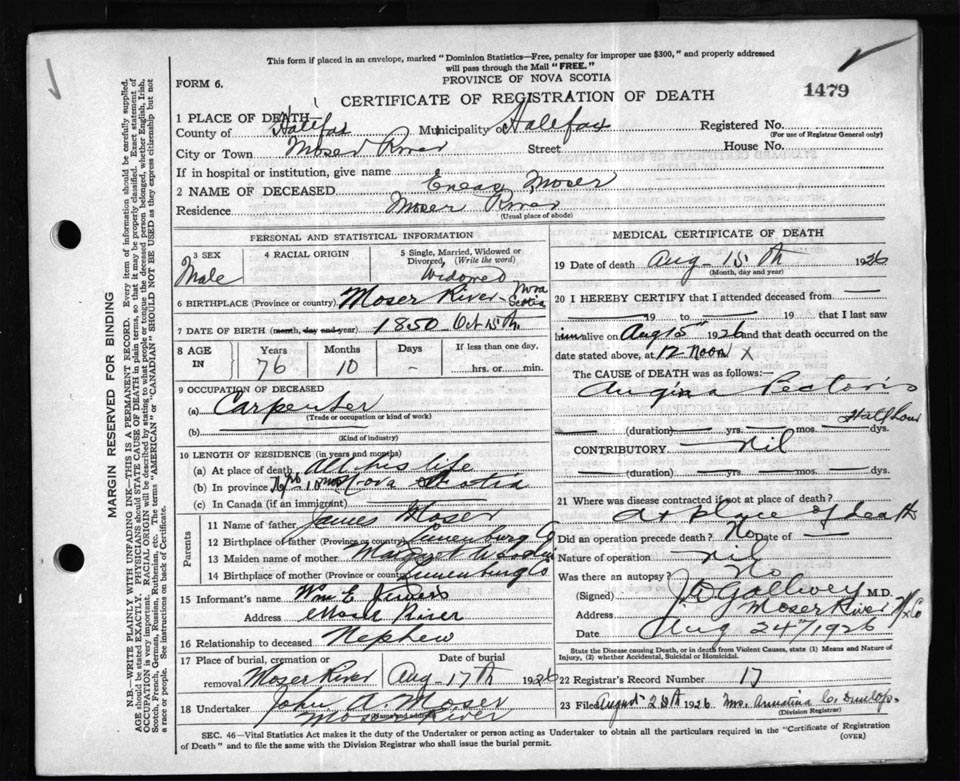 This form if placed in an envelope, marked "Dominion Statistics—Free, penalty for improper use $300," and properly addressed
will pass through the Mail "FREE."
PROVINCE OF NOVA SCOTIA
FORM 6.
CERTIFICATE OF REGISTRATION OF DEATH
1479
1 PLACE OF DEATH
County of Halifax Municipality of Halifax Registered No.
(For use of Registrar General only)
City or Town Moser River Street House No.
If in hospital or institution, give name
2 NAME OF DECEASED Eneas Moser
Residence Moser River
(Usual place of abode)
PERSONAL AND STATISTICAL INFORMATION
3 SEX Male
4 RACIAL ORIGIN
5 Single, Married, Widowed or
Divorced, (Write the word)
Widowed
6 BIRTHPLACE (Province or country) Moser River Nova Scotia
7 DATE OF BIRTH (month, day and year) 1850 Oct 15th
8 AGE IN
Years Months Days If less than one day,
76 10 - hrs. or min.
9 OCCUPATION OF DECEASED
(a) Carpenter
(Trade or occupation or kind of work)
(b)
(Kind of industry)
10 LENGTH OF RESIDENCE (in years and months)
(a) At place of death All his life
(b) In province 76 yrs 10 mos Nova Scotia
(c) In Canada (if an immigrant)
Parents
11 Name of father James Moser
12 Birthplace of father (Province or country) Lunenburg Co
13 Maiden name of mother Margaret
14 Birthplace of mother (Province or country) Lunenburg Co
15 Informant's name Wm E
Address Moser River
16 Relationship to deceased Nephew
17 Place of burial, cremation or Date of burial
removal Moser River Aug 17th 1926
18 Undertaker John A. Moser
(Name and address)
Moser River
MEDICAL CERTIFICATE OF DEATH
19 Date of death Aug 15th 1926
(Month, day and year)
20 I HEREBY CERTIFY that I attended deceased from —
— 19 to — 19 that I last saw
him alive on Aug 15 1926 and that death occurred on the
date stated above, at 12 Noon X
The CAUSE OF DEATH was as follows:—
Angina Pectoris
Half hour
(duration) yrs. mos. dys.
CONTRIBUTORY nil
(duration) yrs. mos. dys.
21 Where was disease contracted if not at place of death?
At place of death
Did an operation precede death? No Date of —
Nature of operation nil
Was there an autopsy? No
(Signed) M.D.
Address Moser River Hfx Co
Date Aug 24th 1926
State the Disease causing Death, or in death from Violent Causes, state (1) Means and Nature of
Injury, (2) whether Accidental, Suicidal or Homicidal.
22 Registrar's Record Number 17
23 Filed August 28th 1926 Mrs. C. Dunlop.
(Division Registrar)
SEC. 46—Vital Statistics Act makes it the duty of the Undertaker or person acting as Undertaker to obtain all the particulars required in the "Certificate of Registration
of Death" and to file the same with the Division Registrar who shall issue the burial permit.
(OVER)
MARGIN RESERVED FOR BINDING
N.B.—WRITE PLAINLY WITH UNFADING INK—THIS IS A PERMANENT RECORD. Every item of information should be carefully supplied.
AGE should be stated EXACTLY. PHYSICIANS should STATE CAUSE OF DEATH in plain terms, so that it may be properly classified. Exact statement of
OCCUPATION is very important. RACIAL ORIGIN will be described by stating to what people or tongue the deceased person belonged, whether English, Irish,
Scotch, French, German, Russian, Ruthenian, etc. The terms "AMERICAN" or "CANADIAN" SHOULD NOT BE USED as they express citizenship but not
a race or people. See instructions on back of Certificate.